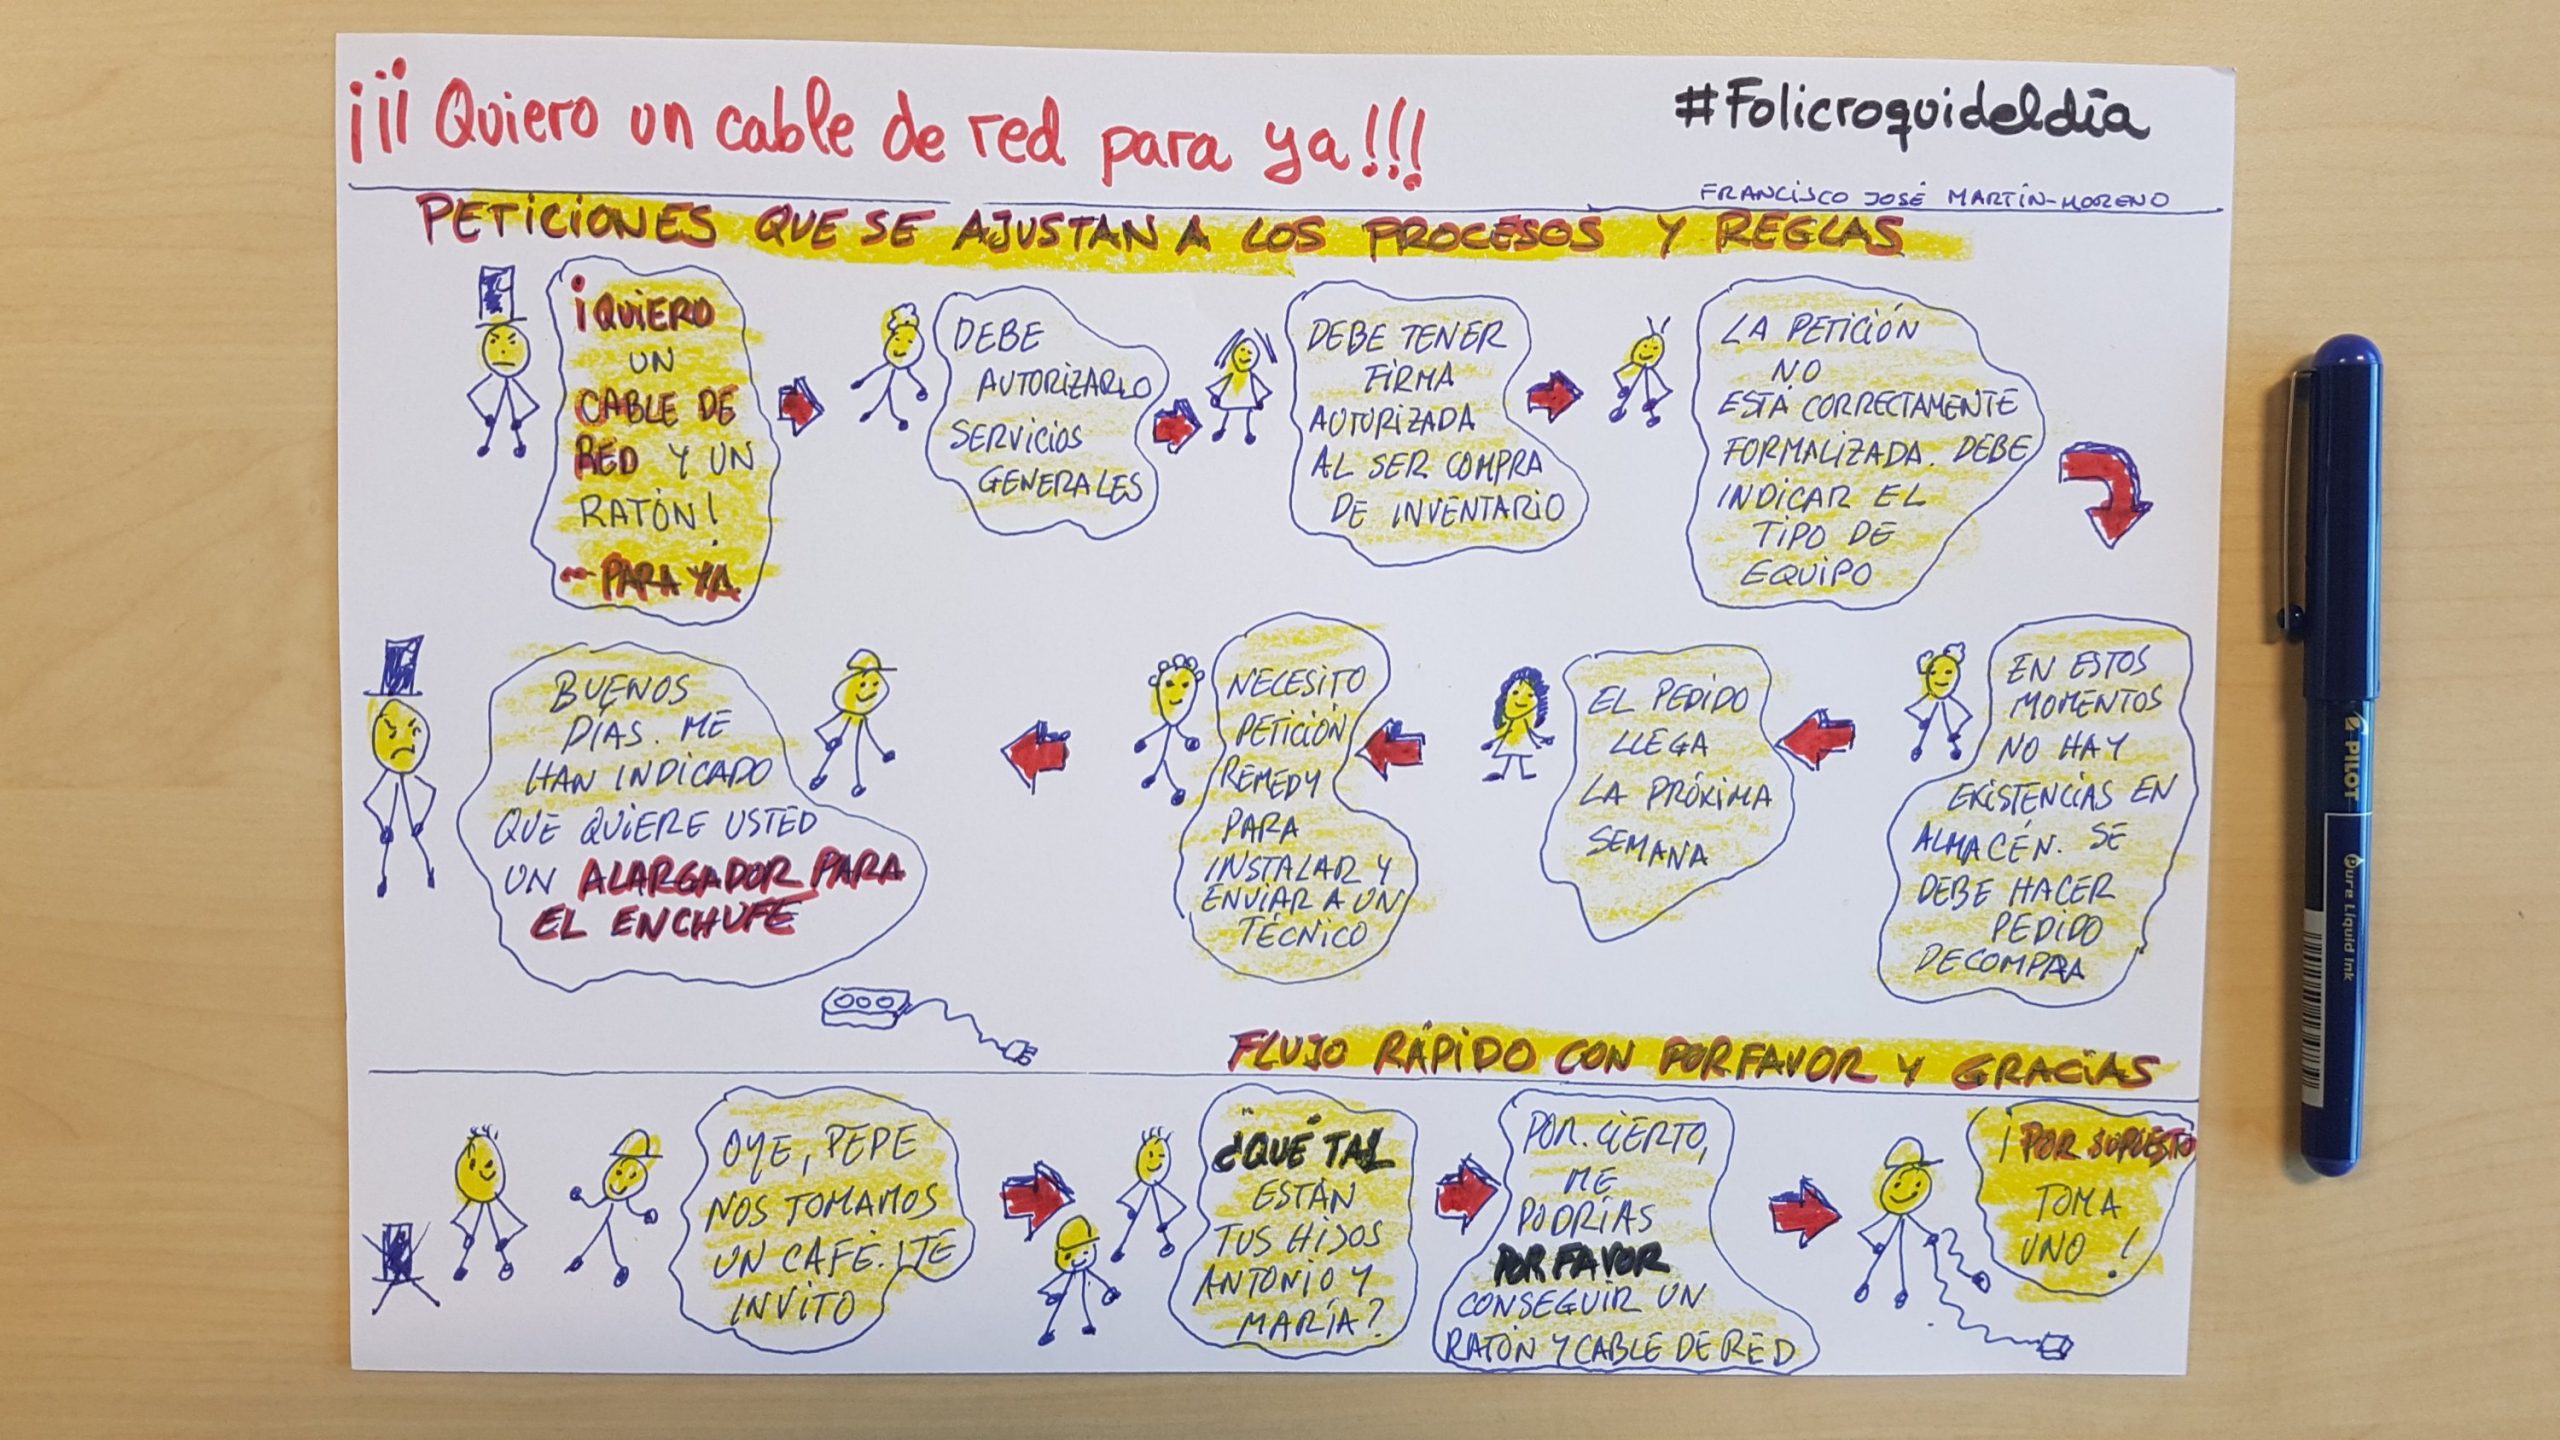 ¡¡¡ Quiero un cable de red para ya!!!
#Folicroquideldía
FRANCISCO JOSÉ MARTÍN-MORENO
PETICIONES QUE SE AJUSTAN A LOS PROCESOS Y REGLAS
¡QUIERO
UN
CABLE DE
RED Y UN
RATÓN!
-- PARA YA
DEBE
AUTORIZARLO
SERVICIOS
GENERALES
DEBE TENER
FIRMA
AUTORIZADA
AL SER COMPRA
DE INVENTARIO
LA PETICIÓN
NO
ESTÁ CORRECTAMENTE
FORMALIZADA. DEBE
INDICAR EL
TIPO DE
EQUIPO
EN ESTOS
MOMENTOS
NO HAY
EXISTENCIAS EN
ALMACÉN. SE
DEBE HACER
PEDIDO
DECOMPRA
EL PEDIDO
LLEGA
LA PRÓXIMA
SEMANA
NECESITO
PETICIÓN
REMEDY
PARA
INSTALAR Y
ENVIAR A UN
TÉCNICO
BUENOS
DÍAS. ME
HAN INDICADO
QUE QUIERE USTED
UN ALARGADOR PARA
EL ENCHUFE
FLUJO RÁPIDO CON PORFAVOR Y GRACIAS
OYE, PEPE
NOS TOMAMOS
UN CAFÉ. ¡TE
INVITO
¿QUÉ TAL
ESTÁN
TUS HIJOS
ANTONIO Y
MARÍA?
POR. CIERTO,
ME
PODRÍAS
POR FAVOR
CONSEGUIR UN
RATÓN Y CABLE DE RED
¡POR SUPUESTO
TOMA
UNO!
PILOT
Pure Liquid Ink